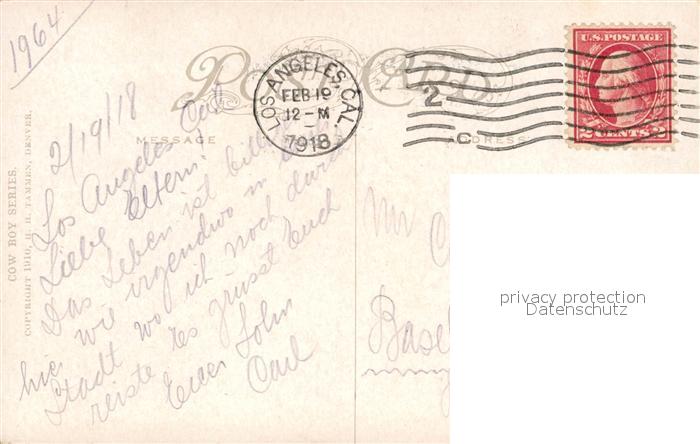 1964
POST CARD
LOS ANGELES, CAL.
FEB 19
12-M
1918
2
U.S. POSTAGE
2 CENTS 2
MESSAGE
ADDRESS
COW BOY SERIES.
COPYRIGHT 1910, H. H. TAMMEN, DENVER.
2/19/18
Los Angeles Cal
Liebe Eltern:
Das Leben ist
hier wie irgendwo in
Stadt wo ich noch durch
reiste Es grüsst Euch
Euer Sohn
Carl
Mr
Basel
privacy protection
Datenschutz